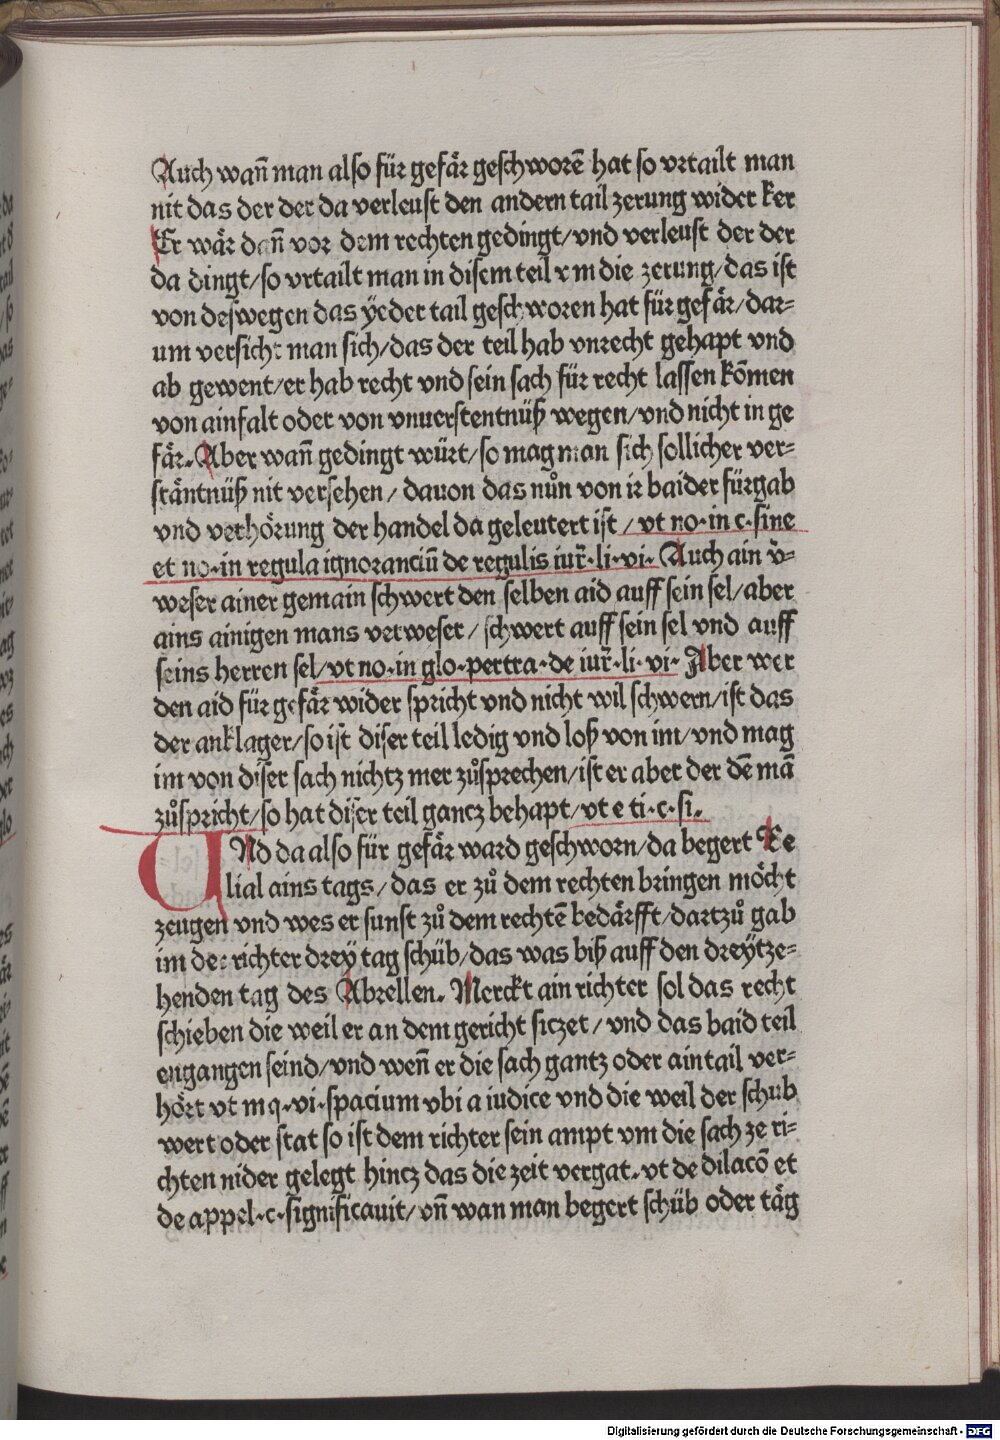 Auch wañ man also für gefår geschworē hat so vrtailt man
nit das der der da verleust den andern tail zerung wider ker
Er wår dañ vor dem rechten gedingt/vnd verleust der der
da dingt/so vrtailt man in disem teil vm die zerung/das ist
von deswegen das ÿeder tail geschworen hat für gefår/dar⸗
um versicht man sich/das der teil hab vnrecht gehapt vnd
ab gewent/er hab recht vnd sein sach für recht lassen kōmen
von ainfalt oder von vnuerstentnüß wegen/vnd nicht in ge
får. Aber wañ gedingt würt/so mag man sich sollicher ver⸗
ståntnüß nit versehen/ dauon das nůn von ir baider fürgab
vnd verhörung der handel da geleutert ist /vt no·in c·fine
et no·in regula ignoranciū de regulis iur̄·li·vi· Auch ain v̄⸗
weser ainer gemain schwert den selben aid auff sein sel/aber
ains ainigen mans verweser/ schwert auff sein sel vnd auff
seins herren sel/vt no·in glo·pertra·de iur̄·li·vi· Aber wer
den aid für gefår wider spricht vnd nicht wil schwern/ist das
der anklager/so ist diser teil ledig vnd loß von im/vnd mag
im von diser sach nichtz mer zůsprechen/ist er aber der dē mā
zůspricht/so hat diser teil gancz behapt/vt e ti·c·si.
VNd da also für gefår ward geschworn/da begert Be
lial ains tags/das er zů dem rechten bringen möcht
zeugen vnd wes er sunst zů dem rechtē bedårfft/dartzů gab
im der richter dreÿ tag schüb/das was biß auff den dreÿtze⸗
henden tag des Abrellen. Merckt ain richter sol das recht
schieben die weil er an dem gericht siczet/vnd das baid teil
engangen seind/vnd weñ er die sach gantz oder aintail ver⸗
hört vt m q·vi·spacium vbi a iudice vnd die weil der schub
wert oder stat so ist dem richter sein ampt vm die sach ze ri⸗
chten nider gelegt hincz das die zeit vergat. vt de dilacō et
de appel·c·significauit/vñ wan man begert schüb oder tåg
Digitalisierung gefördert durch die Deutsche Forschungsgemeinschaft - DFG